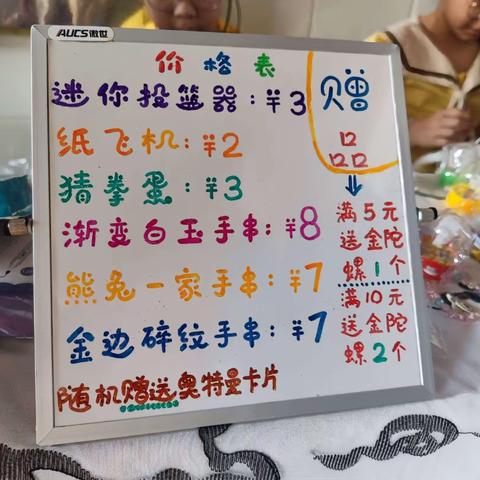 AUCS傲世
价格表
迷你投篮器：¥3
纸飞机：¥2
猜拳蛋：¥3
渐变白玉手串：¥8
熊兔一家手串：¥7
金边碎纹手串：¥7
随机赠送奥特曼卡片
赠品
满5元
送金陀
螺1个
满10元
送金陀
螺2个